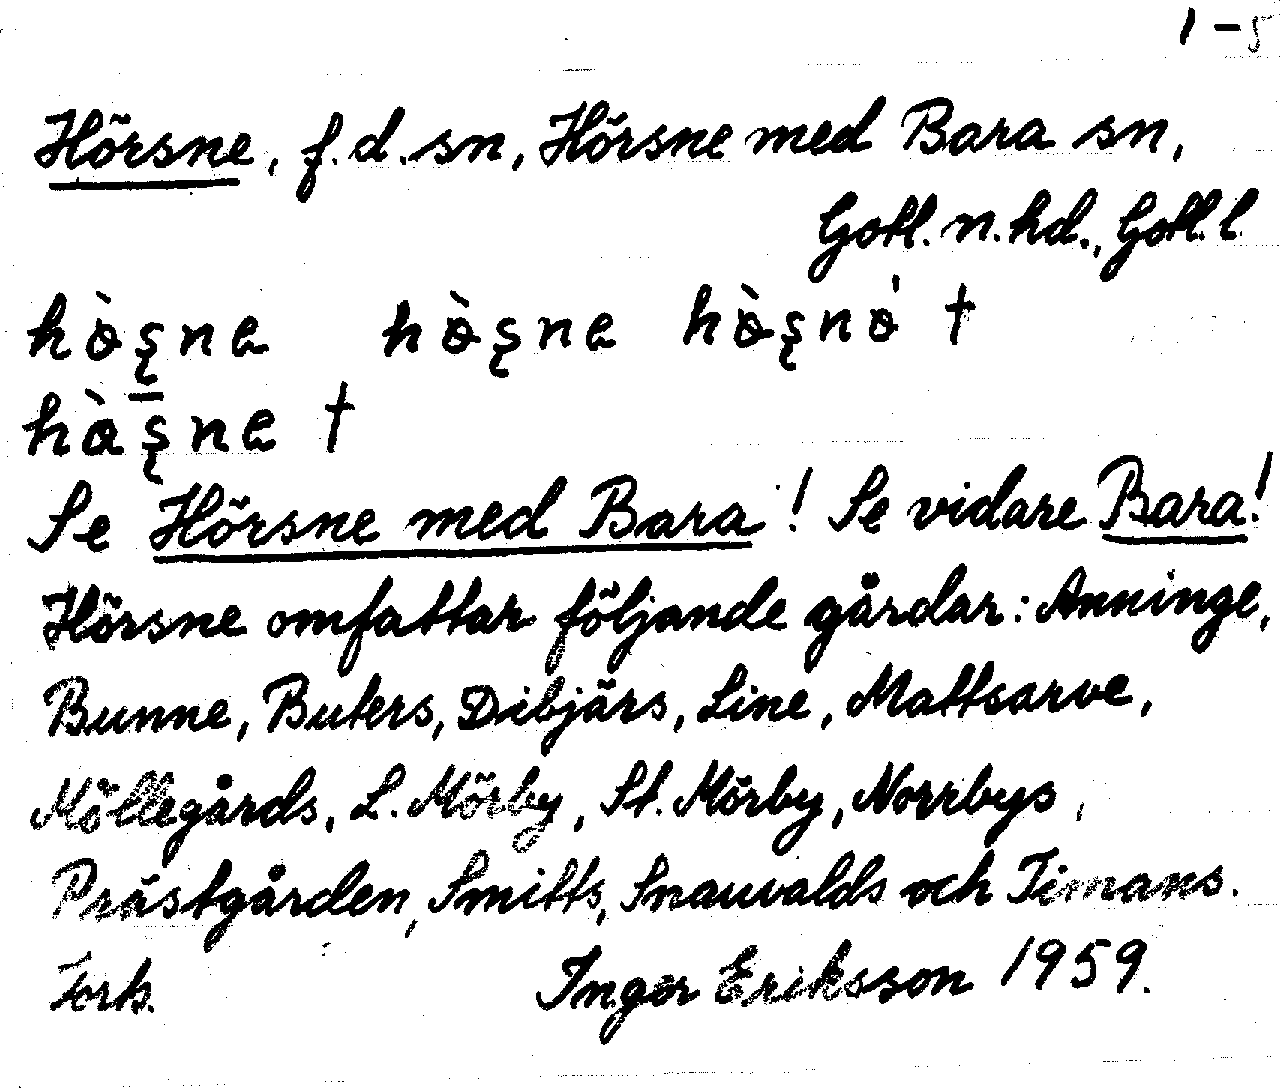 1-5
Hörsne, f.d. sn, Hörsne med Bara sn,
Gotl. n. hd., Gotl. l.
Se Hörsne med Bara! Se vidare Bara!
Hörsne omfattar följande gårdar: Anninge,
Bunne, Buters, Dibjärs, Line, Mattsarve,
Möllegårds, L. Mörby, St. Mörby, Norrbys,
Prästgården, Smitts, Snauvalds och Timans.
Forts. Inger Eriksson 1959.